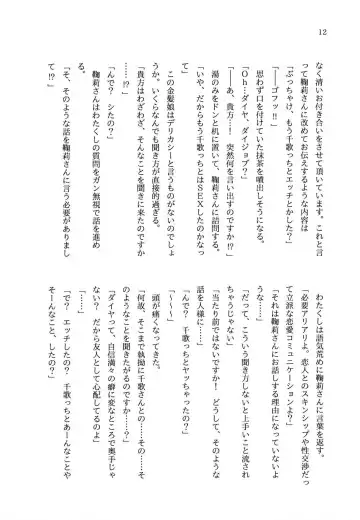 12
なく清いお付き合いをさせて頂いています。これと言
って鞠莉さんに改めてお伝えするような内容は
「ぶっちゃけ、もう千歌っちとエッチとかした?」
「――ゴフッ!!」
思わず口を付けていた抹茶を噴出しそうになる。
「Oh…ダイヤ、ダイジョブ?」
「――あ、貴方…! 突然何を言い出すのですか!?」
湯のみをドンと机に置いて、鞠莉さんに詰問する。
「いや、だからもう千歌っちとはSEXしたのかなっ
て」
この金髪娘はデリカシーと言うものがないのでしょ
うか。いくらなんでも聞き方が直接的過ぎる。
「貴方はわざわざ、そんなことを聞きに来たのですか
……!?」
「んで? シたの?」
鞠莉さんはわたくしの質問をガン無視で話を進め
る。
「そ、そのような話を鞠莉さんに言う必要がありまし
て!?」
わたくしは語気荒めに鞠莉さんに言葉を返す。
「必要アリアリよ、恋人とのスキンシップや性交渉だっ
て立派な恋愛コミュニケーションよ?」
「それは鞠莉さんにお話しする理由になっていないよ
うな……」
「だって、こういう聞き方しないと上手いこと流され
ちゃうじゃない」
「当たり前ではないですか! どうして、そのような
話を人様に……」
「んで? 千歌っちとヤッちゃったの?」
「～～～」
頭が痛くなってきた。
「何故、そこまで執拗に千歌さんとの……その……そ
のようなことを聞きたがるのですか……?」
「ダイヤって、自信満々の癖に変なところで奥手じゃ
ない? だから友人として心配してるのよ」
「……」
「で? エッチしたの? 千歌っちとあーんなことや
そーんなこと、したの?」